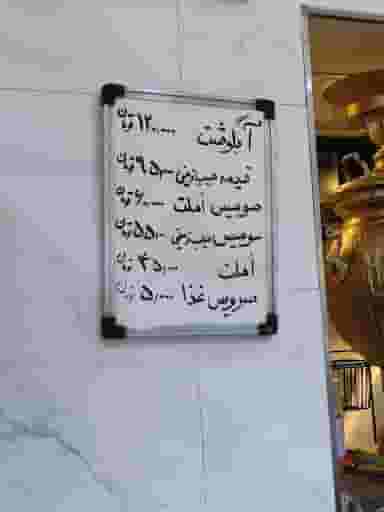 آبگوشت ۱۲۰،۰۰۰ تومان
قیمه سیب‌زمینی ۹۵،۰۰۰ تومان
سوسیس املت ۶۰،۰۰۰ تومان
سوسیس سیب‌زمینی ۵۵،۰۰۰ تومان
املت ۴۵،۰۰۰ تومان
سرویس غذا ۵،۰۰۰ تومان